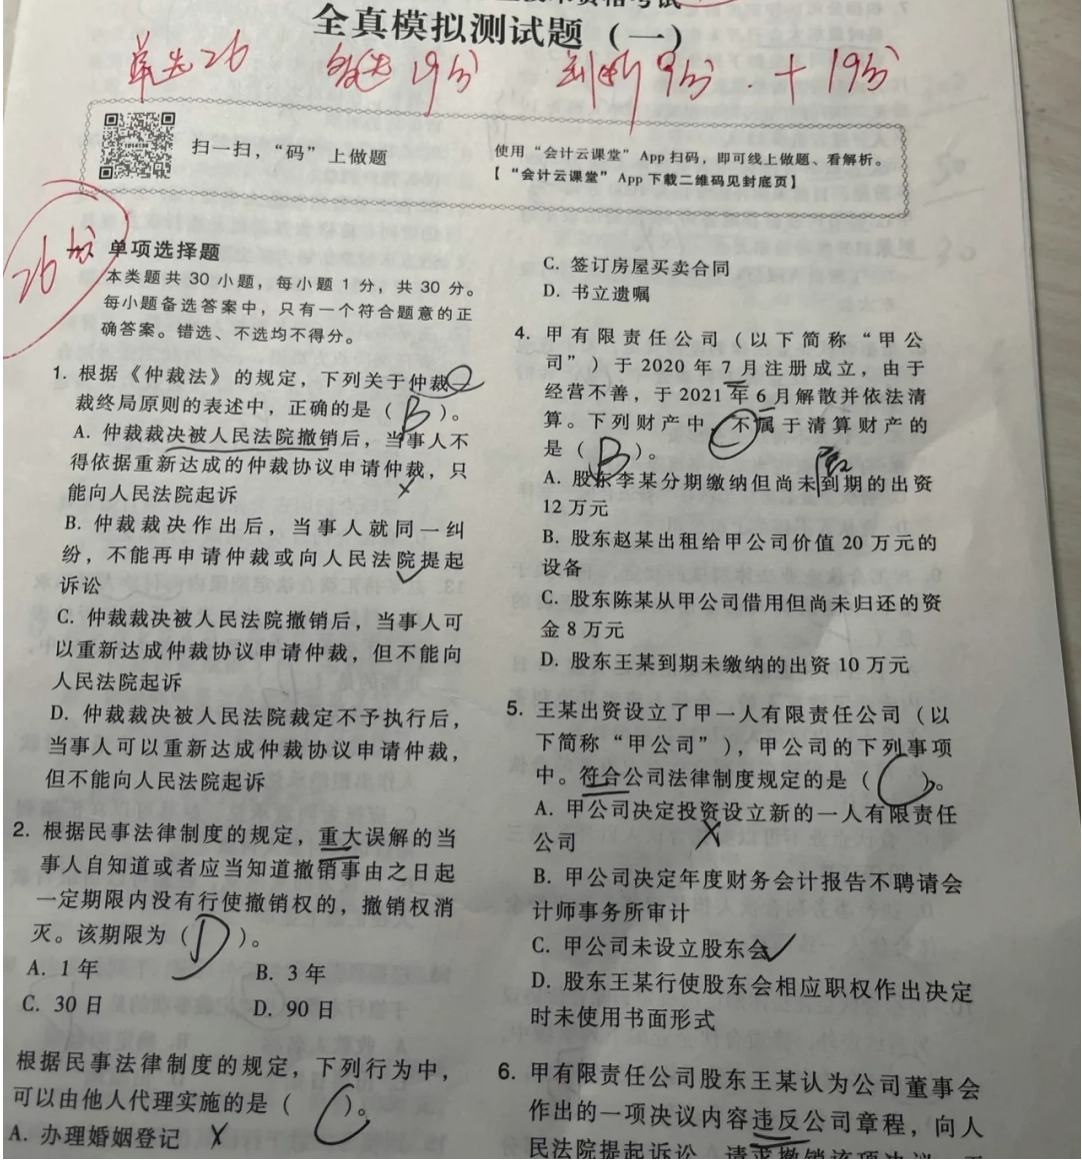 全真模拟测试题（一）
单选26 多选19分 判断9分 . + 19分
扫一扫，“码”上做题
使用“会计云课堂”App 扫码，即可线上做题、看解析。
【“会计云课堂”App 下载二维码见封底页】
26分
单项选择题
本类题共 30 小题，每小题 1 分，共 30 分。
每小题备选答案中，只有一个符合题意的正
确答案。错选、不选均不得分。
1. 根据《仲裁法》的规定，下列关于仲裁一
裁终局原则的表述中，正确的是（ B ）。
A. 仲裁裁决被人民法院撤销后，当事人不
得依据重新达成的仲裁协议申请仲裁，只
能向人民法院起诉
B. 仲裁裁决作出后，当事人就同一纠
纷，不能再申请仲裁或向人民法院提起
诉讼
C. 仲裁裁决被人民法院撤销后，当事人可
以重新达成仲裁协议申请仲裁，但不能向
人民法院起诉
D. 仲裁裁决被人民法院裁定不予执行后，
当事人可以重新达成仲裁协议申请仲裁，
但不能向人民法院起诉
2. 根据民事法律制度的规定，重大误解的当
事人自知道或者应当知道撤销事由之日起
一定期限内没有行使撤销权的，撤销权消
灭。该期限为（ D ）。
A. 1 年 B. 3 年
C. 30 日 D. 90 日
根据民事法律制度的规定，下列行为中，
可以由他人代理实施的是（ C ）。
A. 办理婚姻登记 X
C. 签订房屋买卖合同
D. 书立遗嘱
4. 甲有限责任公司（以下简称“甲公
司”）于 2020 年 7 月注册成立，由于
经营不善，于 2021 年 6 月解散并依法清
算。下列财产中，不属于清算财产的
是（ B ）。
A. 股东李某分期缴纳但尚未到期的出资
12 万元
B. 股东赵某出租给甲公司价值 20 万元的
设备
C. 股东陈某从甲公司借用但尚未归还的资
金 8 万元
D. 股东王某到期未缴纳的出资 10 万元
5. 王某出资设立了甲一人有限责任公司（以
下简称“甲公司”），甲公司的下列事项
中。符合公司法律制度规定的是（ C ）。
A. 甲公司决定投资设立新的一人有限责任
公司 X
B. 甲公司决定年度财务会计报告不聘请会
计师事务所审计
C. 甲公司未设立股东会
D. 股东王某行使股东会相应职权作出决定
时未使用书面形式
6. 甲有限责任公司股东王某认为公司董事会
作出的一项决议内容违反公司章程，向人
民法院提起诉讼，请求撤销该项决议